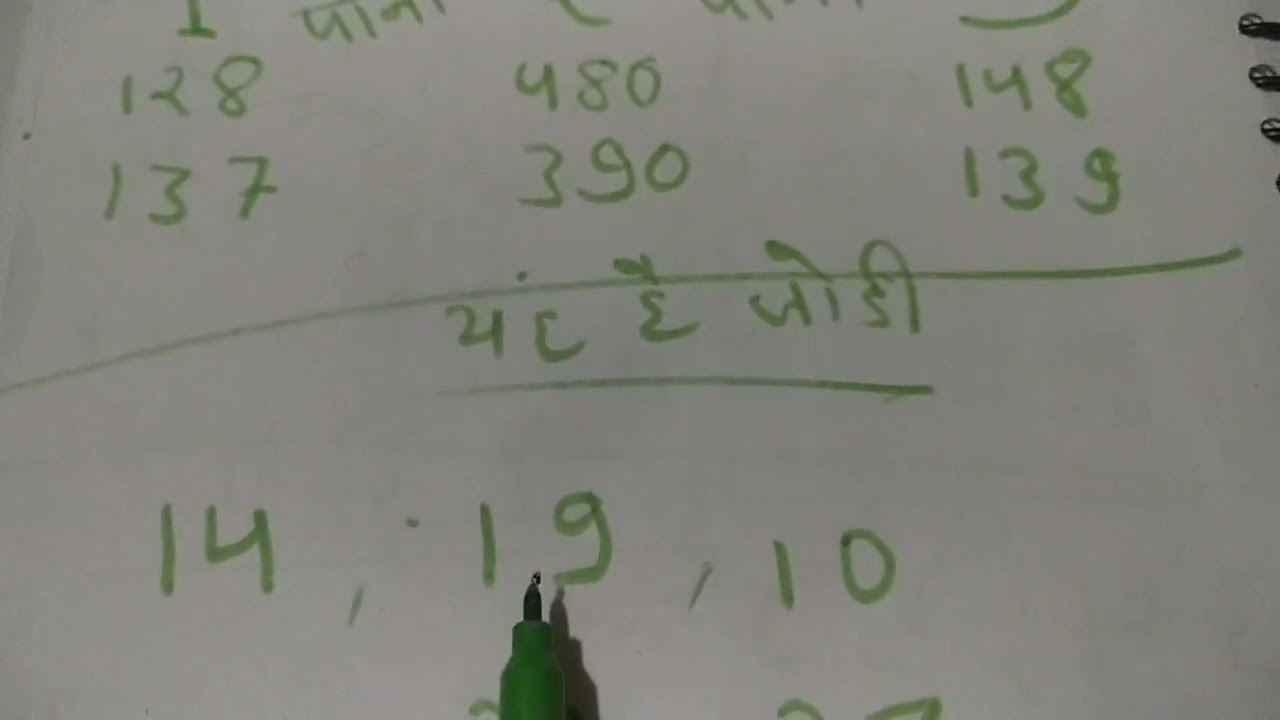 1 पाना 2 पाना 3
128 480 148
137 390 139
यह है जोडी
14 , 19 , 10